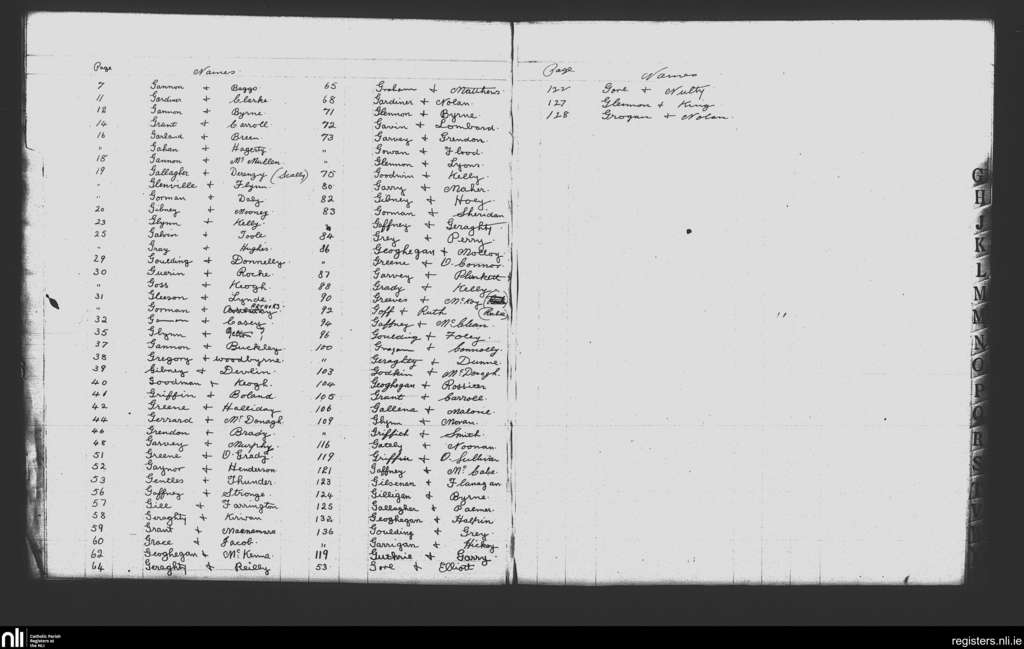 Page Names
7 Gannon + Beggs
11 Gardiner + Clarke
12 Gannon + Byrne
14 Grant + Carroll
16 Garland + Breen
" Gahan + Hagerty
18 Gannon + McMullen
19 Gallagher + Derenzy (Scally)
" Glenville + Flynn
" Gorman + Daly
20 Gibney + Mooney
23 Glynn + Kelly
25 Galvin + Toole
" Gray + Hughes
29 Goulding + Donnelly
30 Guerin + Roche
" Goss + Keogh
31 Gleeson + Lynde
" Gorman +
32 + Casey
35 Glynn +
37 Gannon + Buckley
38 Gregory + Woodbyrne
39 Gibney + Devlin
40 Goodman + Keogh
41 Griffin + Boland
42 Greene + Halliday
44 Gerrard + McDonagh
46 Grendon + Brady
48 Garvey + Murphy
51 Greene + O'Grady
52 Gaynor + Henderson
53 Gentles + Thunder
56 Gaffney + Stronge
57 Gill + Farrington
58 Geraghty + Kirwan
59 Grant + Macnamara
60 Grace + Jacob
62 Geoghegan + McKenna
64 Geraghty + Reilly
65 Graham + Matthews
68 Gardiner + Nolan
71 Glennon + Byrne
72 Gavin + Lombard
73 Garvey + Grendon
" Gowan + Flood
" Glennon + Lyons
75 Goodwin + Kelly
80 Garry + Maher
82 Gibney + Hoey
83 Gorman + Sheridan
" Gaffney + Geraghty
84 Grey + Perry
86 Geoghegan + Molloy
" Greene + O'Connor
87 Garvey + Plunkett
88 Grady + Kelly
90 Greaves + McKey
92 Goff + Ruth
94 Gaffney + McClean
96 Goulding + Foley
100 + Connolly
" Geraghty + Dunne
103 Godkin + McDonagh
104 Geoghegan + Rossiter
105 Grant + Carroll
106 Gallena + Malone
109 Glynn + Moran
" Griffith + Smith
116 Gately + Noonan
119 Griffin + O'Sullivan
121 Gaffney + McCabe
123 Gilsenan + Flanagan
124 Gilligan + Byrne
125 Gallagher + Palmer
132 Geoghegan + Halpin
136 Goulding + Grey
" Garrigan + Hickey
119 Guthrie + Garry
53 Gore + Elliott
Page Names
122 Gore + Nulty
127 Glennon + King
128 Grogan + Nolan
G
H
J
K
L
M
N
O
P
Q
R
S
T
V
nli
Catholic Parish
Registers at
the NLI
registers.nli.ie